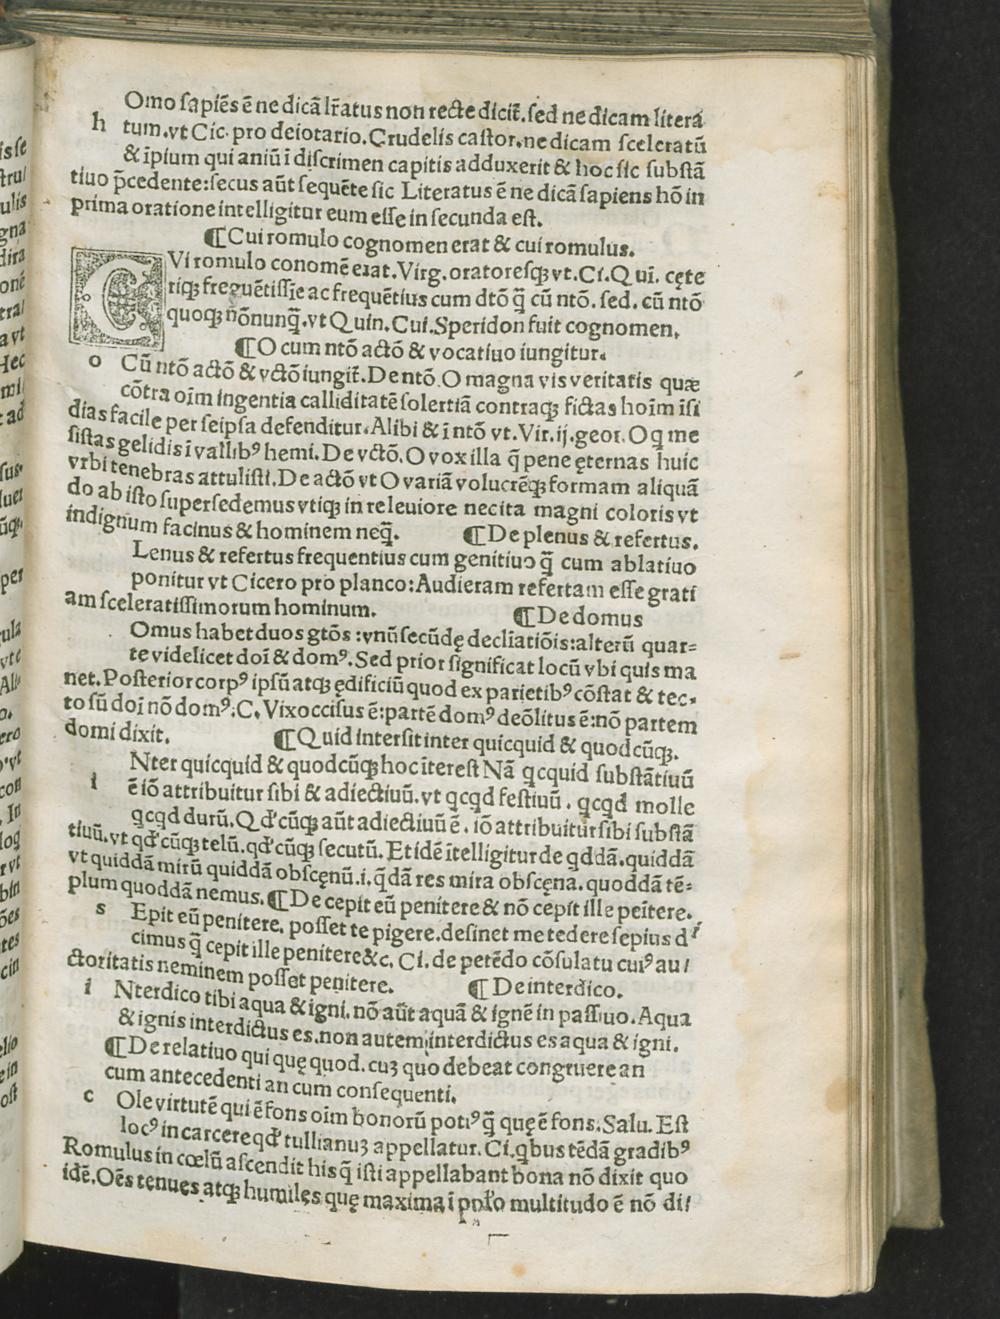 Omo sapiẽs ẽ ne dicã lr̃atus non recte dicit̃. sed ne dicam literá
h tum. vt Cic. pro deiotario. Crudelis castor. ne dicam sceleratũ
& ip̃ium qui aniũ ĩ discrimen capitis adduxerit & hoc sic substã
tiuo p̃cedente: secus aũt sequẽte sic Literatus ẽ ne dicã sapiens hõ in
prima oratione intelligitur eum esse in secunda est.
¶ Cui romulo cognomen erat & cui romulus.
CVi romulo conomẽ erat. Virg. oratoresqꝫ vt. Ci. Q uĩ. cęte
riqꝫ freguẽtissĩe ac frequẽtius cum dtõ q̃ cũ ntõ. sed. cũ ntõ
quoqꝫ nõnunq̃. vt Quin. Cui. Speridon fuit cognomen.
¶ O cum ntõ actõ & vocatiuo iungitur.
o Cũ ntõ actõ & vctõ iungit̃. De ntõ. O magna vis veritatis quæ
cõtra oĩm ingentia calliditatẽ solertiã contraqꝫ fictas hoĩm ĩsi
dias facile per seipsa defenditur. Alibi & ĩ ntõ vt. Vir. ij. geor. O q̃ me
sistas gelidis ĩ vallibꝰ hemi. De vctõ. O vox illa q̃ pene ęternas huic
vrbi tenebras attulisti. De actõ vt O variã volucrẽqꝫ formam aliquã
do ab isto supersedemus vtiqꝫ in releuiore necita magni coloris vt
indignum facinus & hominem neq̃. ¶ De plenus & refertus.
Lenus & refertus frequentius cum genitiuo q̃ cum ablatiuo
ponitur vt Cicero pro planco: Audieram refertam esse grati
am sceleratissimorum hominum. ¶ De domus
Omus habet duos gtõs: vnũ secũdę declĩatiõis: alterũ quar=
te videlicet doĩ & domꝰ. Sed prior significat locũ vbi quis ma
net. Posterior corpꝰ ipsũ atqꝫ ędificiũ quod ex parietibꝰ cõstat & tec-
to sũ doĩ nõ domꝰ. C. Vix occisus ẽ: partẽ domꝰ deõlitus ẽ: nõ partem
domi dixit. ¶ Quid intersit inter quicquid & quodcũqꝫ.
Nter quicquid & quodcũqꝫ hoc ĩterest Nã qcquid substãtiuũ
i ẽ iõ attribuitur sibi & adiectiuũ. vt qcqd festiuũ. qcqd molle
qcqd durũ. Qd'cũqꝫ aũt adiectiuũ ẽ. iõ attribuitur sibi substã
tiuũ. vt qd'cũqꝫ telũ. qd'cũqꝫ secutũ. Et idẽ ĩtelligitur de qddã. quiddã
vt quiddã mirũ quiddã obscęnũ. i. q̃dã res mira obscęna. quoddã tẽ=
plum quoddã nemus. ¶ De cepit eũ penitere & nõ cepit ille peĩtere.
s Epit eũ penitere. posset te pigere. desinet me tedere sepius dꝛ
cimus q̃ cepit ille penitere &c. Ci. de petẽdo cõsulatu cuiꝰ au/
ctoritatis neminem posset penitere. ¶ De interdico.
i Nterdico tibi aqua & igni. nõ aũt aquã & ignẽ in passiuo. Aqua
& ignis interdictus es. non autem interdictus es aqua & igni.
¶ De relatiuo qui quę quod. cuꝫ quo debeat congruere an
cum antecedenti an cum consequenti.
c Ole virtutẽ qui ẽ fons oĩm bonorũ potiꝰ q̃ quę ẽ fons. Salu. Est
locꝰ in carcere qd' tullianuꝫ appellatur. Ci. qbus tẽdã gradibꝰ
Romulus in cœlũ ascendit his q̃ isti appellabant bona nõ dixit quo
idẽ. Oẽs tenues atqꝫ humiles quę maxima ĩ pol'o multitudo ẽ nõ di/